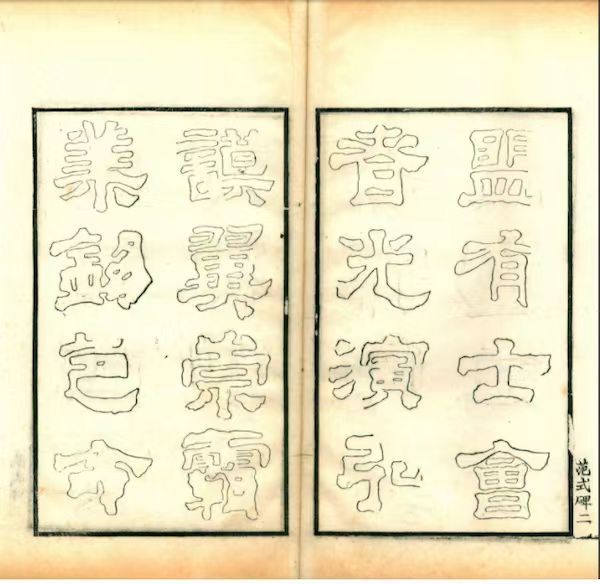 盟有士會
者光演弘
謨翼崇霸
業錫邑命
范式碑二